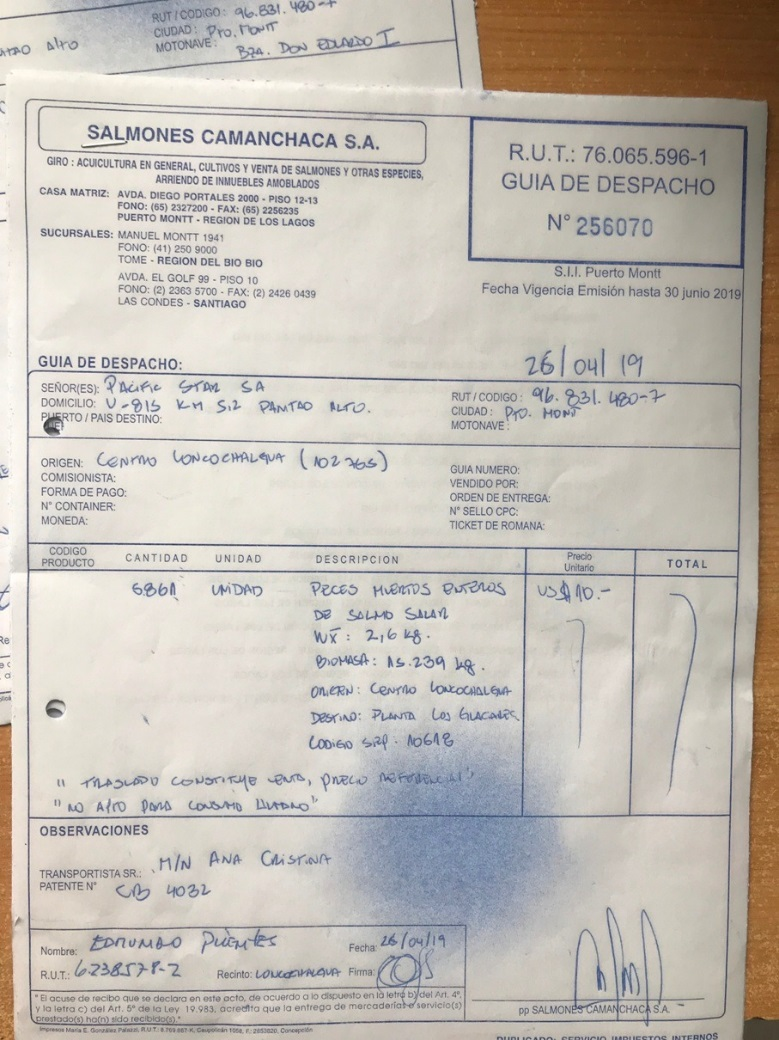 RUT / CODIGO : 96.831.480-7
CIUDAD : Pto. Montt
MOTONAVE : Bza. Don Eduardo I
Alto
SALMONES CAMANCHACA S.A.
GIRO : ACUICULTURA EN GENERAL, CULTIVOS Y VENTA DE SALMONES Y OTRAS ESPECIES,
ARRIENDO DE INMUEBLES AMOBLADOS
CASA MATRIZ: AVDA. DIEGO PORTALES 2000 - PISO 12-13
FONO: (65) 2327200 - FAX: (65) 2256235
PUERTO MONTT - REGION DE LOS LAGOS
SUCURSALES: MANUEL MONTT 1941
FONO: (41) 250 9000
TOME - REGION DEL BIO BIO
AVDA. EL GOLF 99 - PISO 10
FONO: (2) 2363 5700 - FAX: (2) 2426 0439
LAS CONDES - SANTIAGO
R.U.T.: 76.065.596-1
GUIA DE DESPACHO
N° 256070
S.I.I. Puerto Montt
Fecha Vigencia Emisión hasta 30 junio 2019
GUIA DE DESPACHO: 26/04/19
SEÑOR(ES): Pacific Star SA
DOMICILIO: U-815 KM 5.2 Pantao Alto.
PUERTO / PAIS DESTINO:
RUT / CODIGO : 96.831.480-7
CIUDAD : Pto. Mont
MOTONAVE :
ORIGEN: Centro Loncochalgua (102765)
COMISIONISTA:
FORMA DE PAGO:
N° CONTAINER:
MONEDA:
GUIA NUMERO:
VENDIDO POR:
ORDEN DE ENTREGA:
N° SELLO CPC:
TICKET DE ROMANA:
CODIGO PRODUCTO CANTIDAD UNIDAD DESCRIPCION Precio Unitario TOTAL
5.861 UNIDAD PECES MUERTOS ENTEROS US$ 10.-
DE SALMO SALAR
WX̄: 2,6 kg.
BIOMASA: 15.239 kg.
ORIGEN: CENTRO LONCOCHALGUA
DESTINO: PLANTA LOS GLACIARES
CODIGO SRP: 10618
" TRASLADO CONSTITUYE VENTA, PRECIO REFERENCIAL"
"NO APTO PARA CONSUMO HUMANO"
OBSERVACIONES
TRANSPORTISTA SR.: M/N ANA CRISTINA
PATENTE N° CB 4032
Nombre: EDMUNDO PUENTES Fecha: 26/04/19
R.U.T.: 6238578-2 Recinto: LONCOCHALGUA Firma:
" El acuse de recibo que se declara en este acto, de acuerdo a lo dispuesto en la letra b) del Art. 4°,
y la letra c) del Art. 5° de la Ley 19.983, acredita que la entrega de mercadería o servicio(s)
prestado(s) ha(n) sido recibido(s)."
pp SALMONES CAMANCHACA S.A.
PUBLICADO: SERVICIO IMPUESTOS INTERNOS